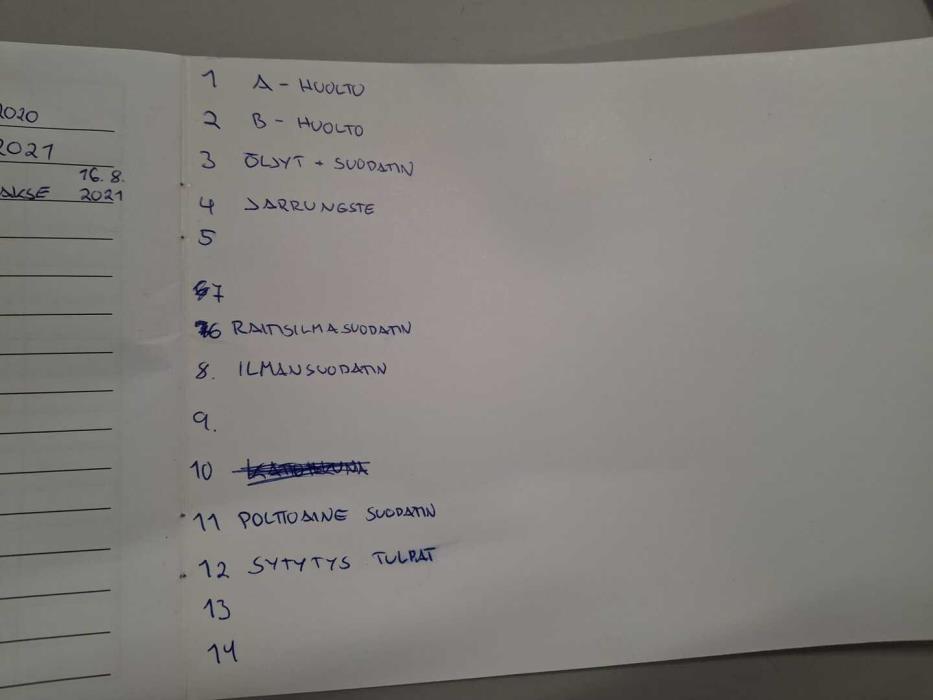 2020
2021
16.8.
AKSE 2021
1 A - HUOLTO
2 B - HUOLTO
3 ÖLJYT + SUODATIN
4 JARRUNGSTE
5
7
6 RAITISILMASUODATIN
8. ILMANSUODATIN
9.
10
11 POLTTOAINE SUODATIN
12 SYTYTYS TULPAT
13
14